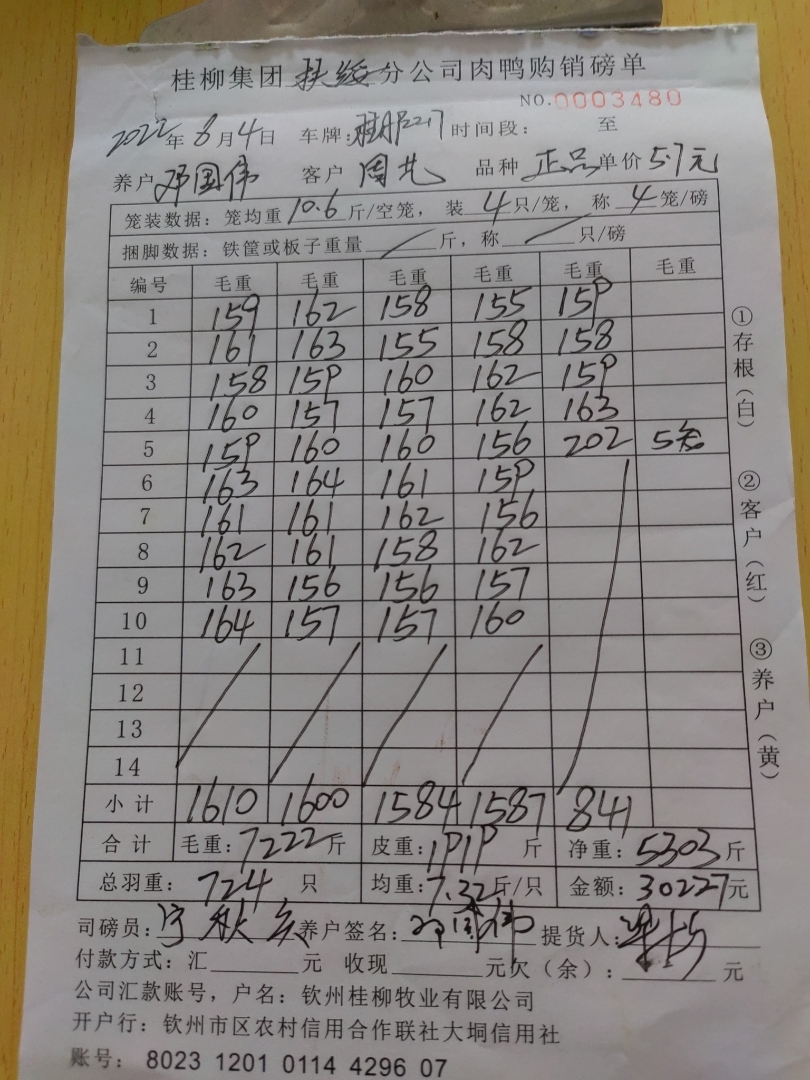 桂柳集团扶绥分公司肉鸭购销磅单
NO.0003480
2022年8月4日 车牌: 时间段: 至
养户 邓国伟 客户 周 品种 正品 单价5.7元
笼装数据: 笼均重10.6斤/空笼, 装4只/笼, 称4笼/磅
捆脚数据: 铁筐或板子重量/斤, 称/只/磅
编号 毛重 毛重 毛重 毛重 毛重 毛重
1 159 162 158 155 159
2 161 163 155 158 158
3 158 159 160 162 159
4 160 157 157 162 163
5 159 160 160 156 202 5笼
6 163 164 161 159
7 161 161 162 156
8 162 161 158 162
9 163 156 156 157
10 164 157 157 160
11
12
13
14
小计 1610 1600 1584 1587 841
合计 毛重: 7222斤 皮重: 1919斤 净重: 5303斤
总羽重: 724只 均重: 7.32斤/只 金额: 30227元
司磅员: 养户签名: 邓国伟 提货人:
付款方式: 汇 元 收现 元欠(余): 元
公司汇款账号, 户名: 钦州桂柳牧业有限公司
开户行: 钦州市区农村信用合作联社大垌信用社
账号: 8023 1201 0114 4296 07
①存根(白)
②客户(红)
③养户(黄)